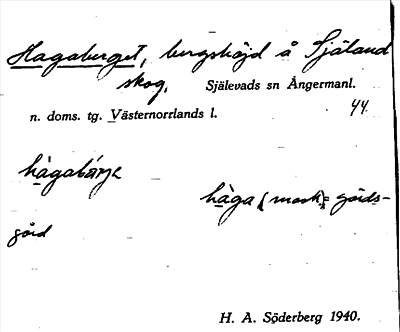 Hagaberget, bergshöjd å Själand
skog, Själevads sn Ångermanl.
n. doms. tg. Västernorrlands l. 44.
hàgabárje
hàga (mask) = gärds-
gård
H. A. Söderberg 1940.